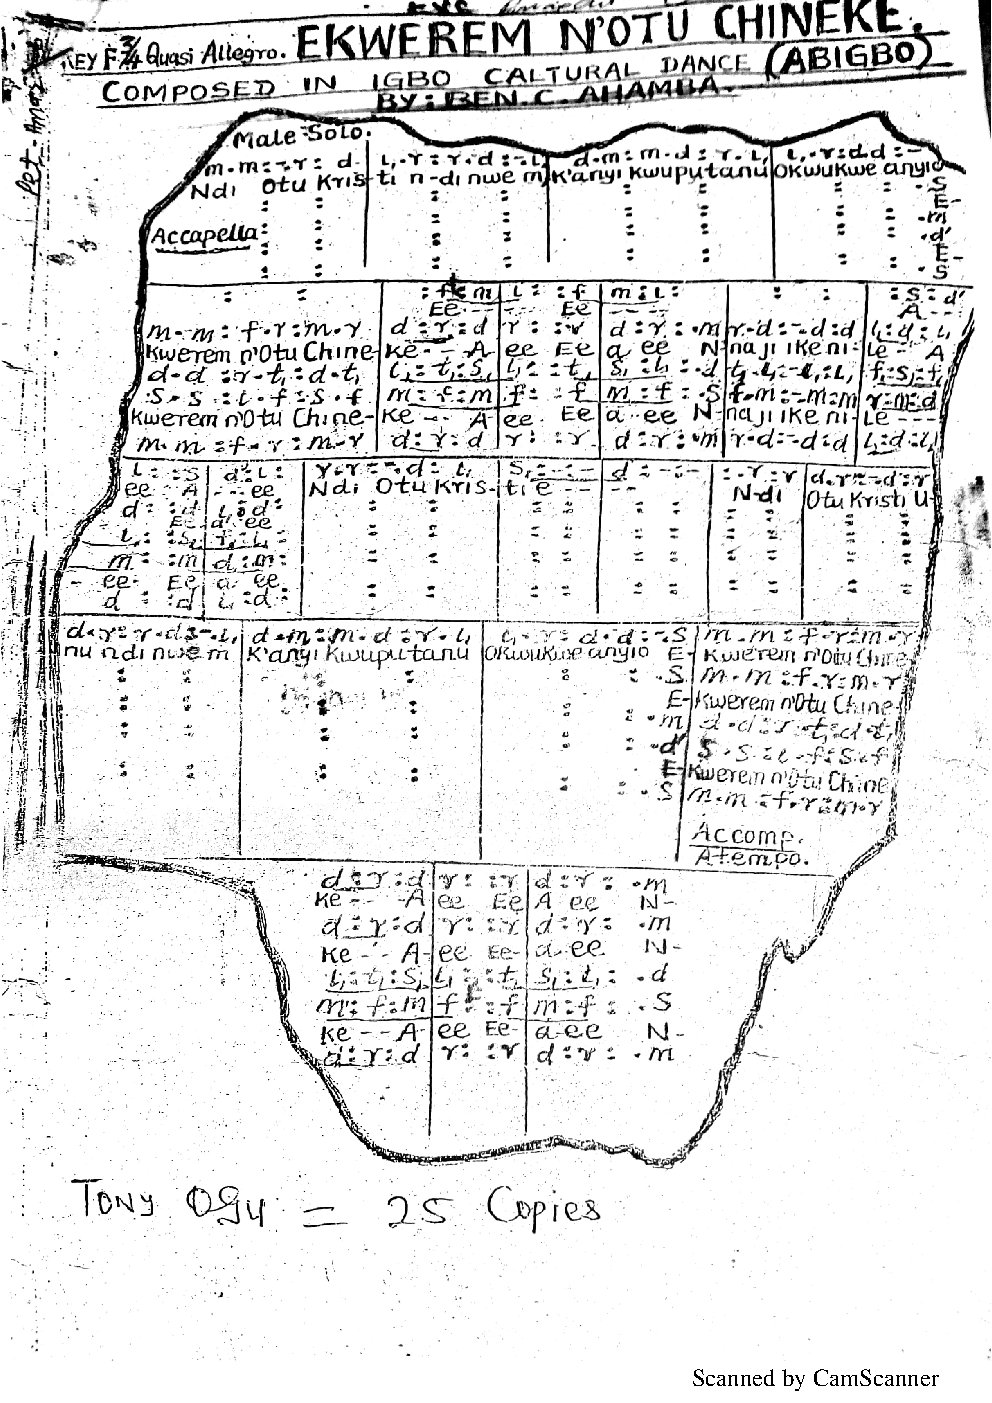 KEY F ¾ Quasi Allegro. EKWEREM N'OTU CHINEKE.
COMPOSED IN IGBO CALTURAL DANCE (ABIGBO)
BY: BEN. C. AHAMBA.
Male Solo.
m.m:-.r:d. l,.r:r.d:-.l, d.m:m.d:r.l, l,.r:d.d:-
Ndi Otu Kris-ti n-di nwe m, K'anyi Kwuputanu Okwukwe anyio
S
E-
.m
Accapella: .d'
E-
. S
:f:m l: :f m:l: :S:d'
Ee--- Ee A--
m.m:f.r:m.r d:r:d r: :r d:r:.m r.d:-.d:d l,:d:l,
Kwerem n'Otu Chine- Ke-- A ee Ee a ee N- na ji ike ni- Le- A
d.d:r.t,:d.t, l,:t,:S, l,: :t, S,:l,:.d t,.l,:-.l,:l, f,:S,:f,
S.S:l.f:S.f m:f:m f: :f m:f:.S f.m:-.m:m r:m:d
Kwerem n'Otu Chine- Ke--- A ee Ee a-ee N- na ji ike ni- Le ---
m.m:f.r:m.r d:r:d r: :r d:r:.m r.d:-.d:d l,:d:l,
l: :S d':l: r.r:-.d:l, S,:-:- d:-:- :r.r d.r:-.d:r
ee A --ee Ndi Otu Kris-ti e-- -- N-di Otu Kristi U-
d: :d l,:d:
Ee a ee
l,: :S, f,:l,:
m: :m d:m:
- ee- Ee a ee
d: :d l,:d:
d.r:r.d:-.l, d.m:m.d:r.l, l,.r:d.d:-.S m.m:f.r:m.r
nu ndi nwe m K'anyi Kwuputanu Okwukwe anyio E- Kwerem n'Otu Chine-
.S m.m:f.r:m.r
E- Kwerem n'Otu Chine-
.m d.d:r.t,:d.t,
.d' S.S:l.f:S.f
E- Kwerem n'Otu Chine
.S m.m:f.r:m.r
Accomp.
Atempo.
d:r:d r: :r d:r:.m
Ke-- A ee Ee A ee N-
d:r:d r: :r d:r:.m
Ke-- A- ee Ee- a-ee N-
l,:t,:S, l,: :t, S,:l,:.d
m:f:m f: :f m:f:.S
Ke-- A- ee Ee- a-ee N-
d:r:d r: :r d:r:.m
TONY OGU = 25 Copies
Scanned by CamScanner